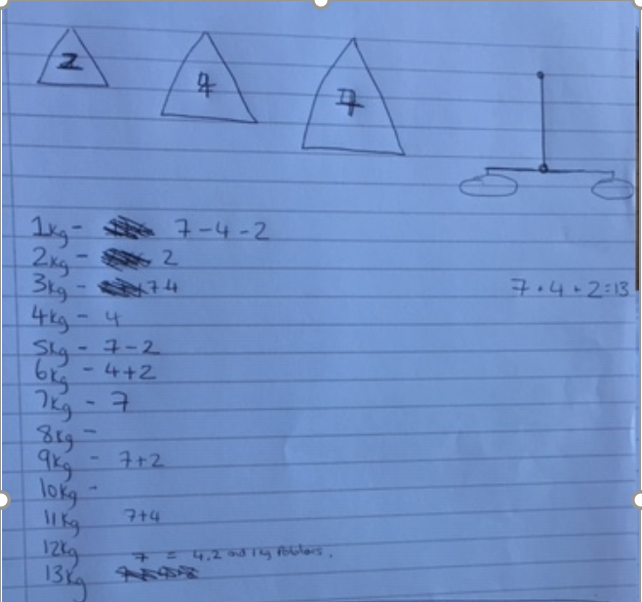 2 4 7
1kg - 7-4-2
2kg - 2
3kg - 74
7 . 4 . 2 = 13
4kg - 4
5kg - 7-2
6kg - 4+2
7kg - 7
8kg -
9kg - 7+2
10kg -
11kg 7+4
12kg
7 = 4.2 and 1kg
13kg